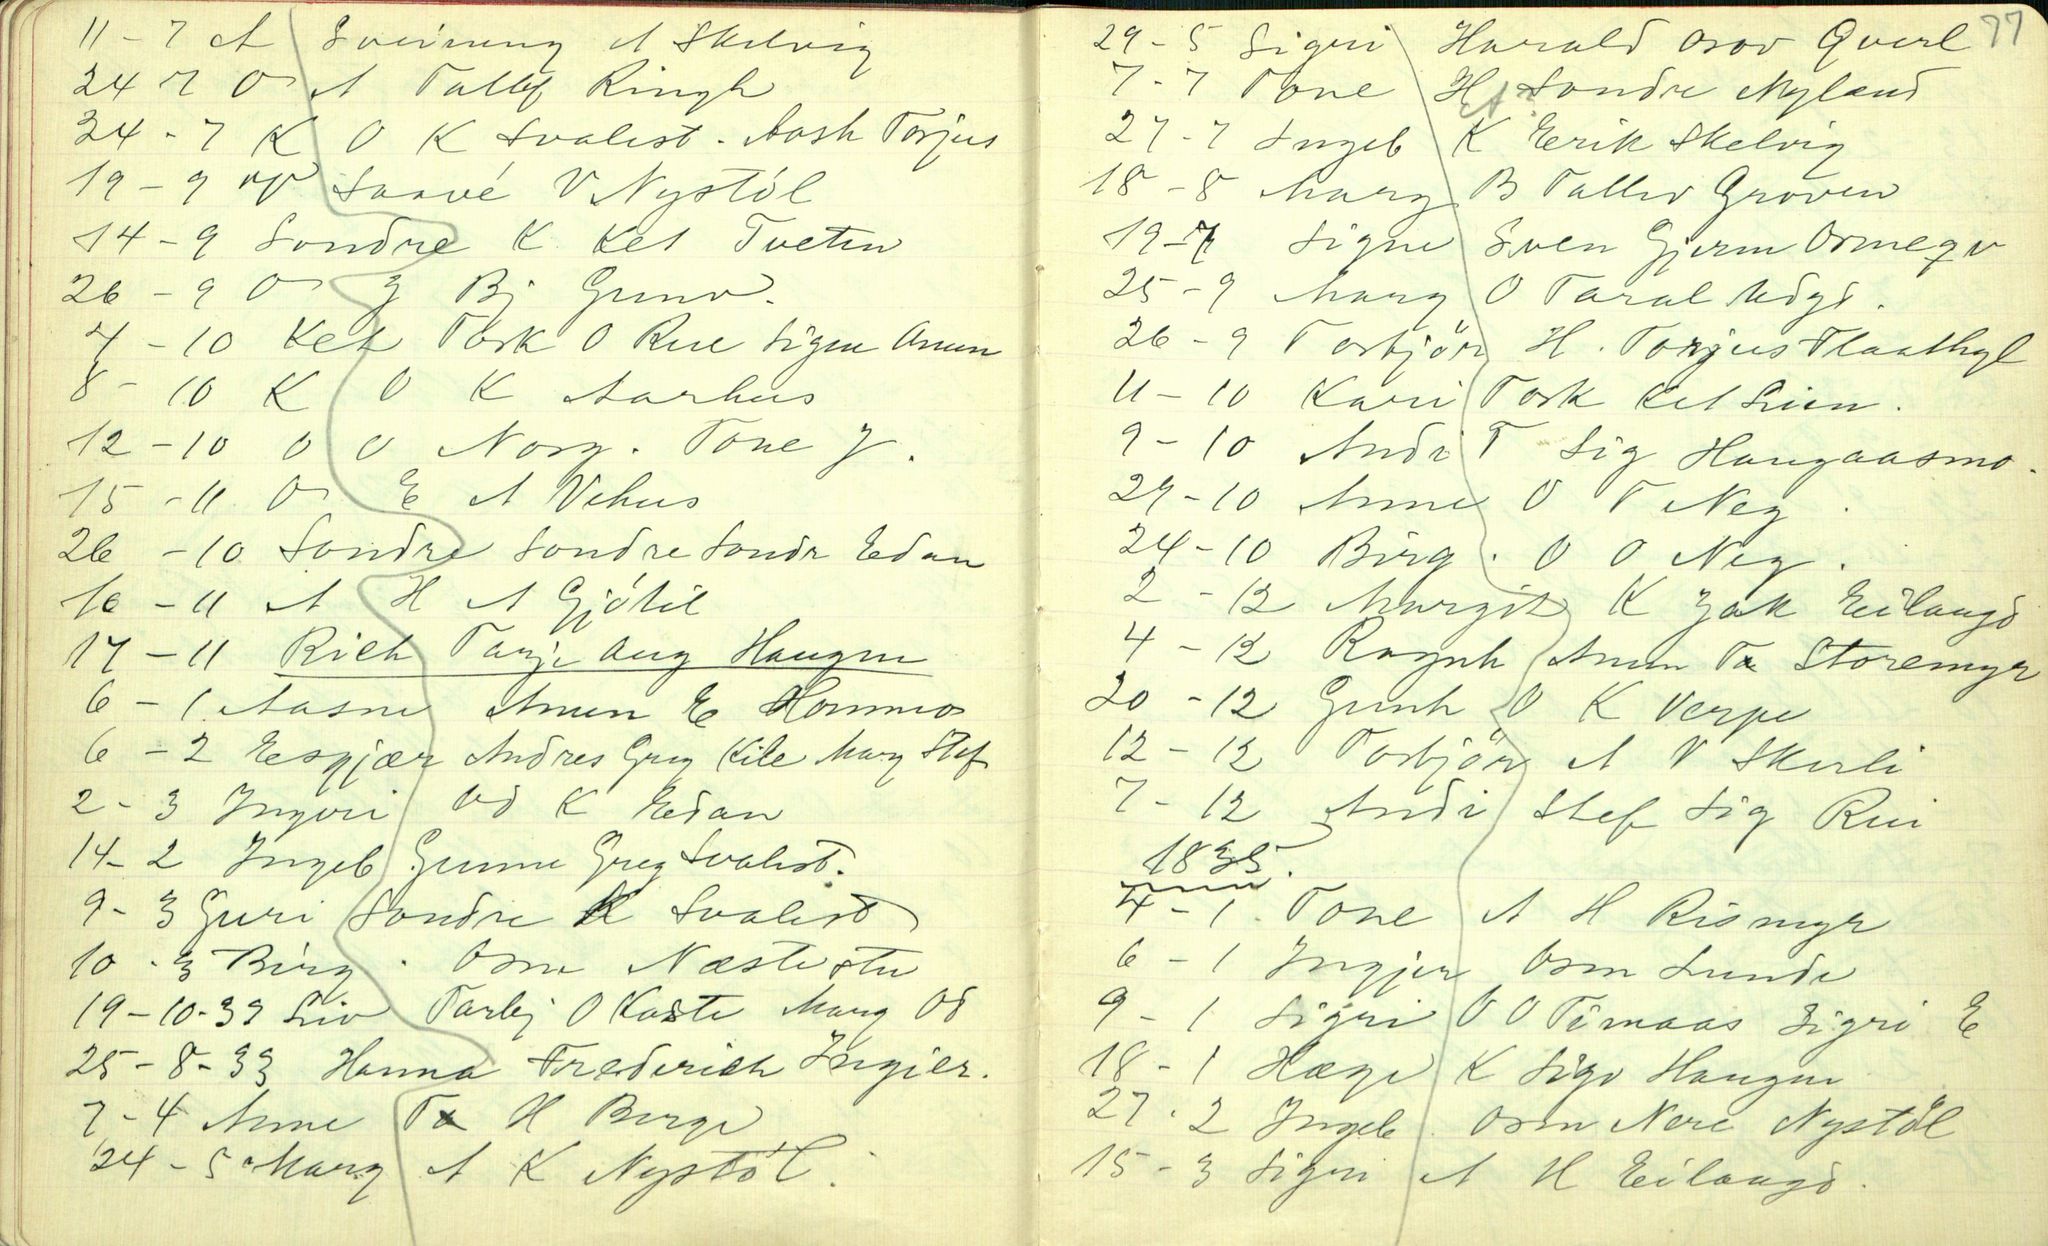 11 - 7 A Sveinung A Skelvig
24 7 O A Tallef Ringh
24 - 7 K O K Svalest. Aash Torjus
19 - 9 Saavé V Nystól
14 - 9 Sondre K Ket Tveten
26 - 9 O J Bj Grunv.
7 - 10 Ket Tork O Rue Signe Anun
8 - 10 K O K Aarhus
12 - 10 O O Norg. Tone J.
15 - 11 O E A Vehus
26 - 10 Sondre Sondre Sondr Edan
16 - 11 A H A Gjótil
17 - 11 Rich Tarje Aug Haugen
6 - 1 Aasne Anun E Hommos
6 - 2 Eesgjær Andres Greg Kile Marg Stef
2 - 3 Ingvri Od K Edan
14 - 2 Ingeb Gunne Greg Svalest.
9 - 3 Guri Sondre K Svalest
10 - 3 Birg. Osm Næstestu
19 - 10 - 33 Liv Tarbj O Kaste Marg Od
25 - 8 - 33 Hanna Frederich Ingier.
7 - 4 Anne Ta H Berge
24 - 5 Marg A K Nystól.
77
29 - 5 Sigri Harald Osov Qverl
7 - 7 Tone H Sondre Nyland
27 - 7 Ingeb K Eerik Skelvig
18 - 8 Marg B Tallev Groven
19 - 7 Signe Sven Gjerm Osmeqv
25 - 9 Marg O Taral Udgd.
26 - 9 Torbjör H. Torjus Flaathyl
11 - 10 Kari Tork Ket Lien.
9 - 10 Andi T Sig Haugaasmo.
27 - 10 Anne O T Neg.
24 - 10 Birg. O O Neg.
2 - 12 Margit K Jak Eilaugd
4 - 12 Ragnh Anun Ta Storemyr
20 - 12 Gunh O K Verpe
12 - 12 Torbjör A V Skerli
7 - 12 Andi Stef Sig Rui
1835.
4 - 1. Tone A H Rismyr
6 - 1 Ingjer Osm Lunde
9 - 1 Sigri O O Timaas Sigri E
18 - 1 Hæge K Sigv Haugen
27 - 2 Ingeb. Osm Nere Nystöl
15 - 3 Sigri A H Eilaugd.